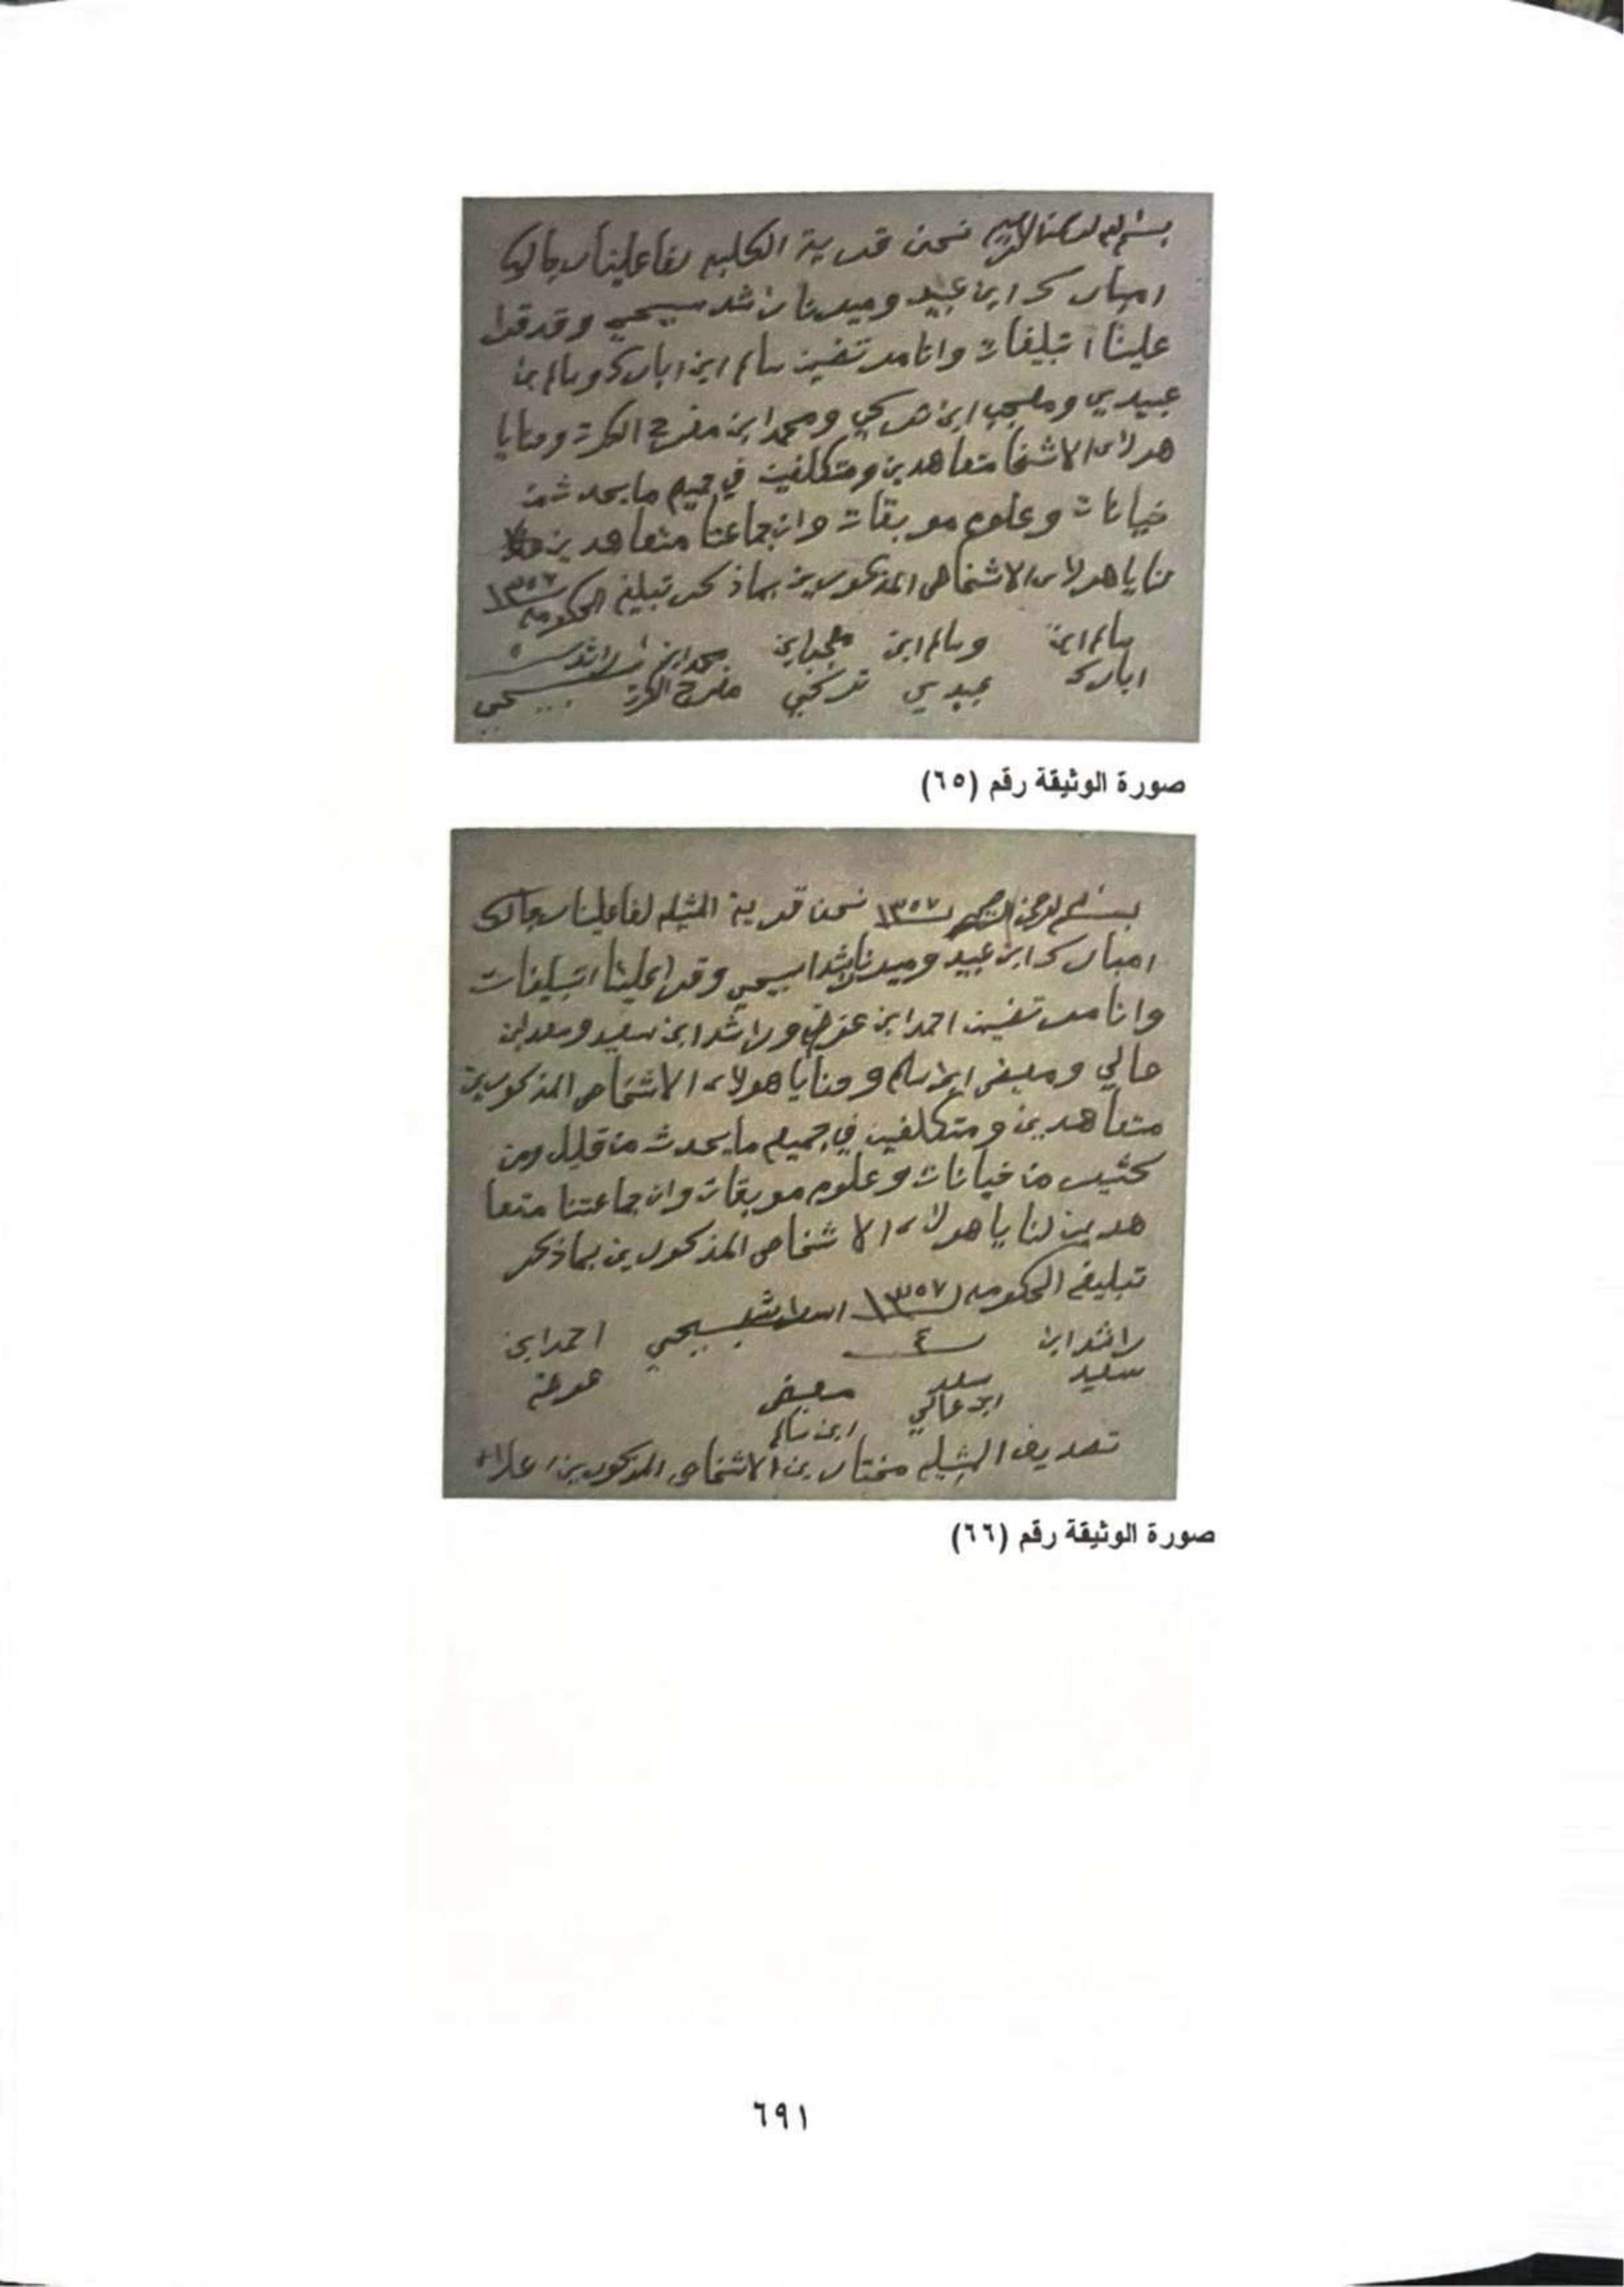 نحن قرية الكليه لفا علينا رجال
امبارك ابن عبيد وعيد راشد سبيحي وقد قرا
علينا اتبليغات وانا مرتضين سالم ابن امبارك وسالم ابن
عبيدي وملحب ابن تركي ومحمد ابن مفرح الكرت ومنايا
هولاء الاشخا متعاهدين ومتكلفين في جميع ما يحدث من
خيانات وعلوم موبقات وان جماعتنا متعاهدين
منايا هولاء الاشخاص المذكورين بماذكر تبليغ الحكومه ١٣٥٧
سالم ابن وسالم ابن محمد ابن راشد
ابارك عبيدي تركي مفرح الكرت سبيحي
صورة الوثيقة رقم (٦٥)
بسم الرحمن الرحيم ١٣٥٧ نحن قرية الشيله لفا علينا رجال
امبارك ابن عبيد وعيد راشد سبيحي وقرا علينا اتبليغات
وانا مرتضين احمد ابن عوضه وراشد ابن سعيد وسعد ابن
عالي ومعيض ابن سالم ومنايا هولاء الاشخاص المذكورين
متعاهدين ومتكلفين في جميع ما يحدث من قليل ومن
كثير من خيانات وعلوم موبقات وان جماعتنا متعا
هدين لنا يا هولاء الاشخاص المذكورين بماذكر
تبليغ الحكومه ١٣٥٧ راشد سبيحي احمد ابن
راشد ابن ٤ عوضه
سعيد سعد معيض
ابن عالي ابن سالم
تصديق الشيله مختارين الاشخاص المذكورين اعلاه
صورة الوثيقة رقم (٦٦)
٦٩١